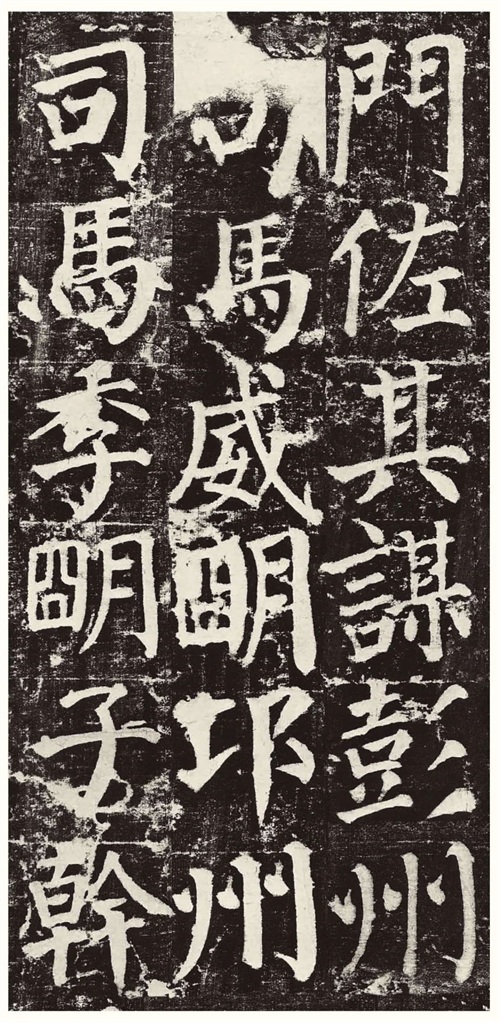 門佐其謀彭州
司馬威明邛州
司馬季明子幹